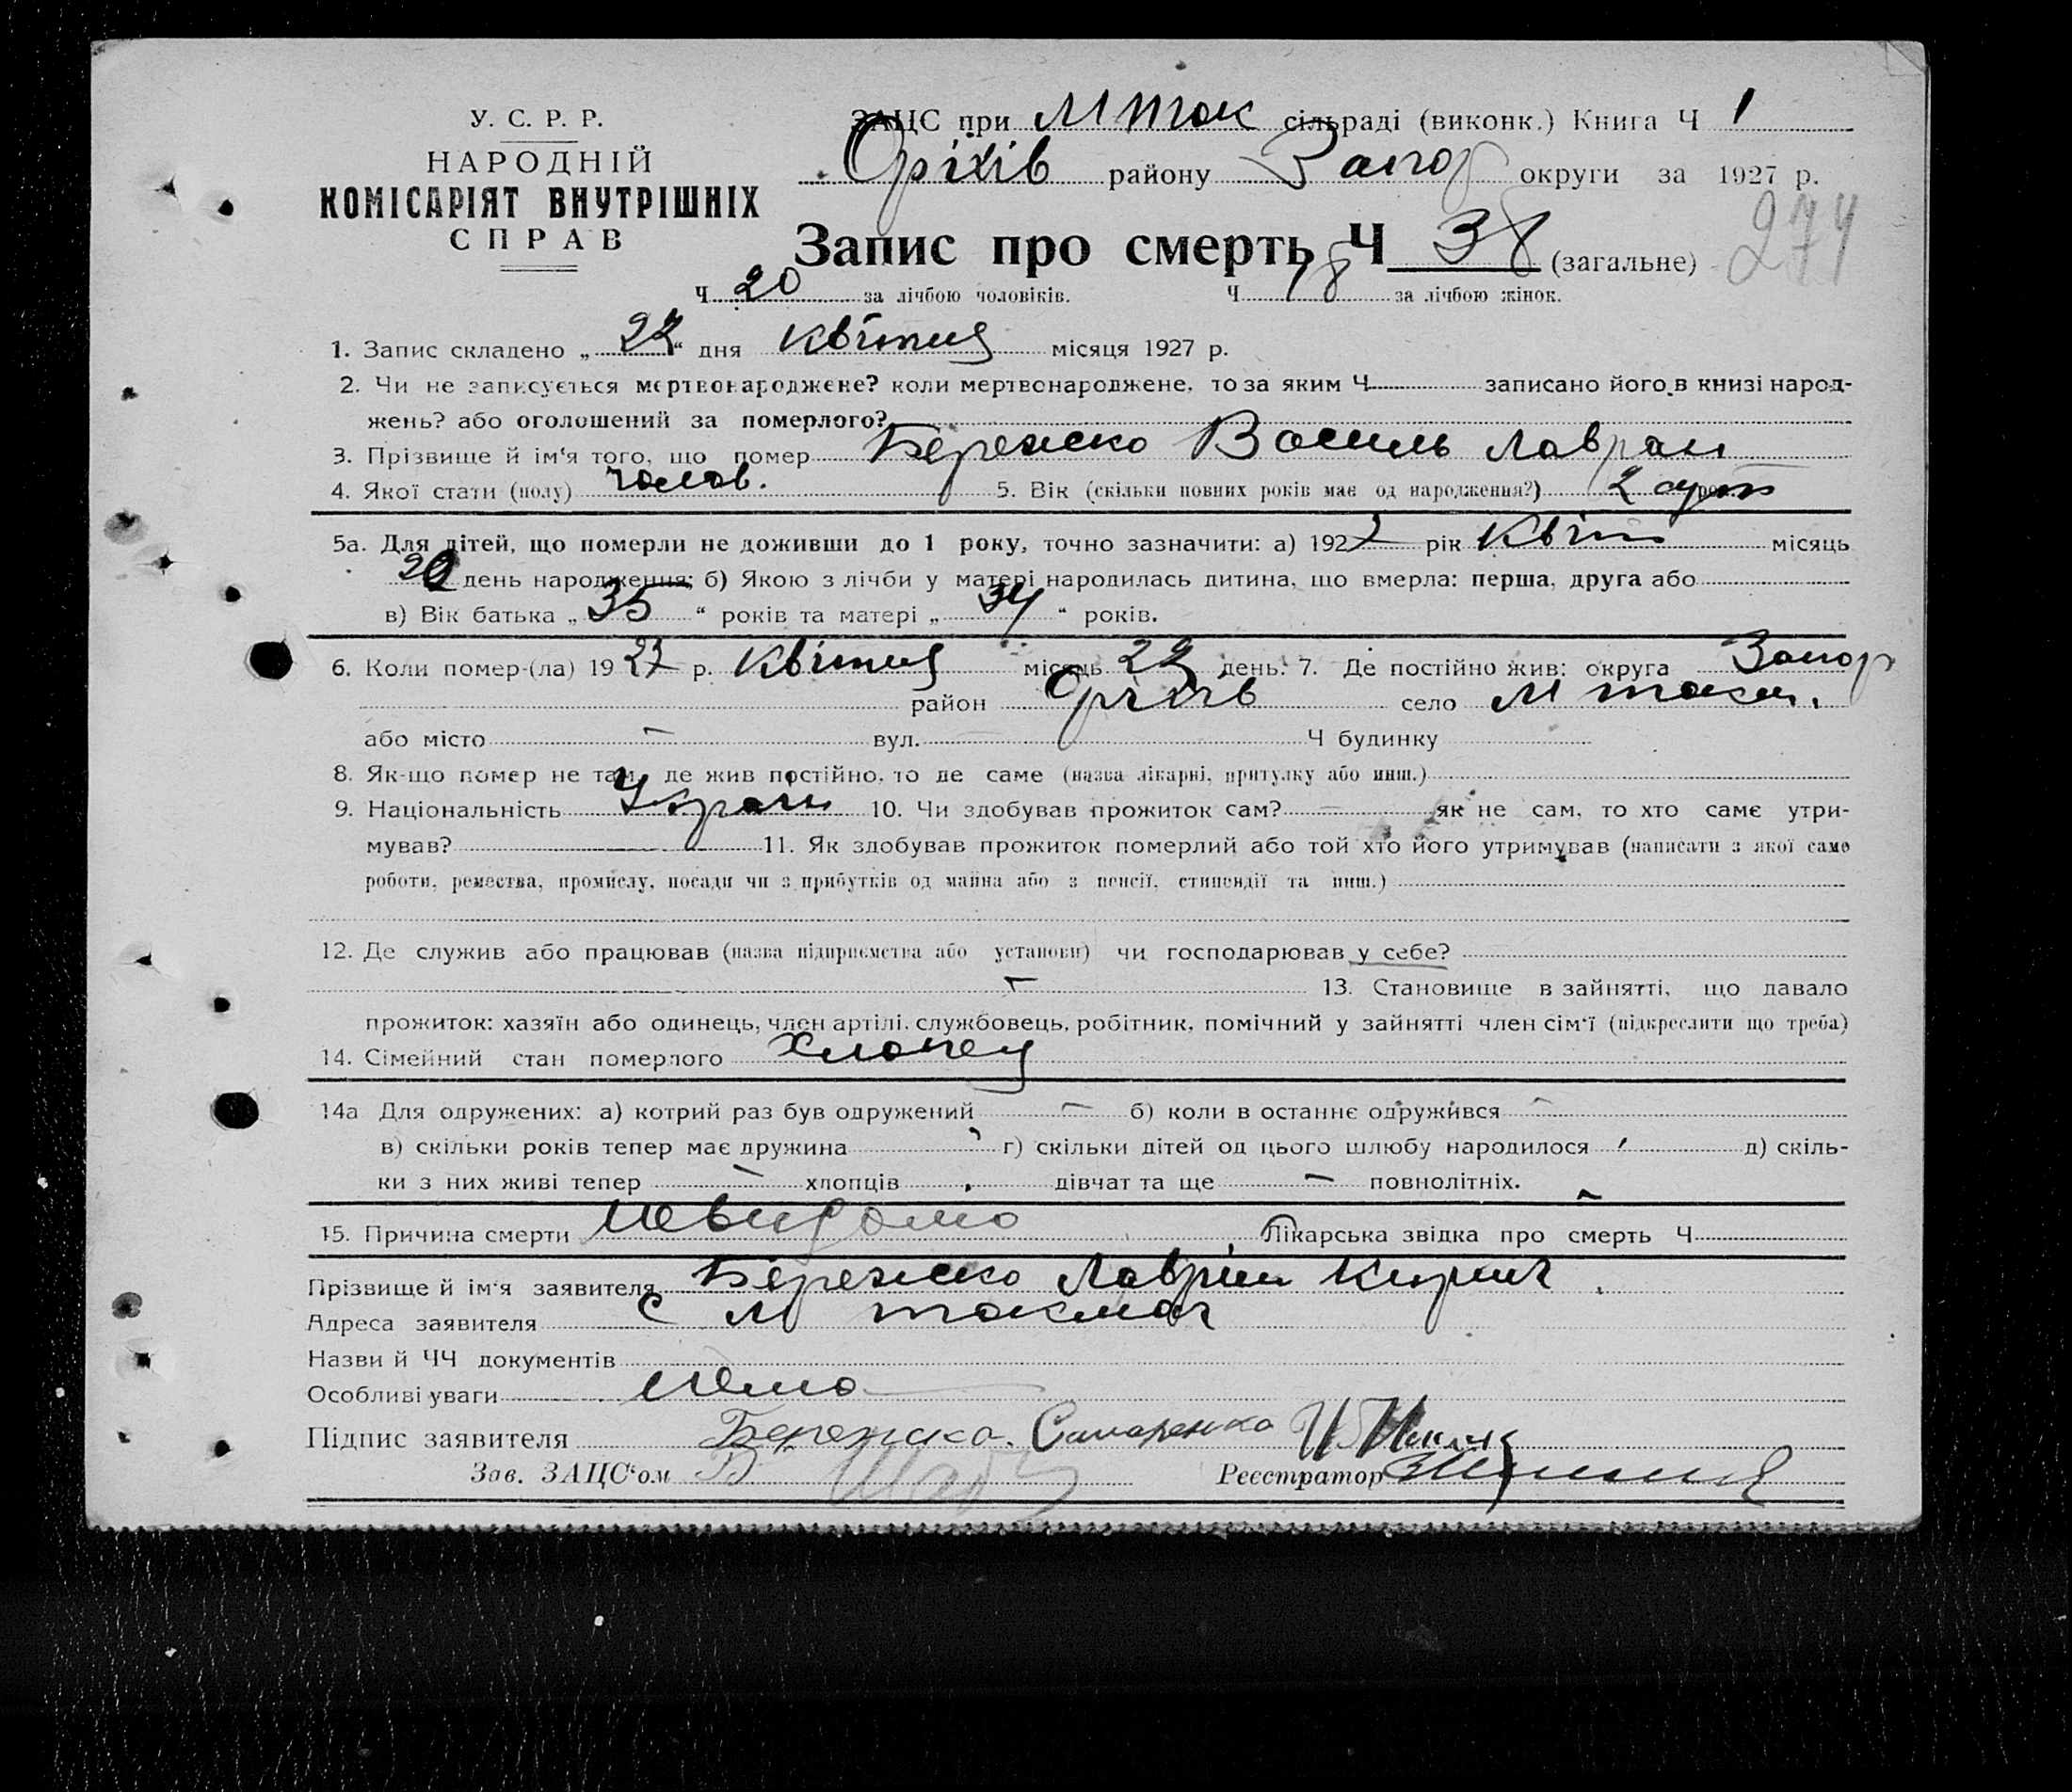 У. С. Р. Р.
НАРОДНІЙ
КОМІСАРІЯТ ВНУТРІШНІХ
СПРАВ
ЗАЦС при М Ток сільраді (виконк.) Книга Ч 1
Оріхів району Запор округи за 1927 р.
274
Запис про смерть Ч 38 (загальне)
Ч 20 за лічбою чоловіків. Ч 18 за лічбою жінок.
1. Запис складено „ “ дня квітня місяця 1927 р.
2. Чи не записується мертвонароджене? коли мертвонароджене, то за яким Ч записано його в книзі народ-
жень? або оголошений за померлого?
3. Прізвище й ім‘я того, що помер Бережко Василь Лаврін
4. Якої стати (полу) чолов. 5. Вік (скільки повних років має од народження?) 2 сут
5а. Для дітей, що померли не доживши до 1 року, точно зазначити: а) 1927 рік Квіт місяць
20 день народження; б) Якою з лічби у матері народилась дитина, що вмерла: перша, друга або
в) Вік батька „ 35 “ років та матері „ 34 “ років.
6. Коли помер-(ла) 19 27 р. Квітня місяць день. 7. Де постійно жив: округа Запор
район Оріхів село М Токм.
або місто – вул. Ч будинку
8. Як-що помер не там, де жив постійно, то де саме (назва лікарні, притулку або инш.)
9. Національність Украін 10. Чи здобував прожиток сам? – як не сам, то хто саме утри-
мував? 11. Як здобував прожиток померлий або той хто його утримував (написати з якої саме
роботи, ремества, промислу, посади чи з прибутків од майна або з пенсії, стипендії та инш.)
12. Де служив або працював (назва підприємства або установи) чи господарював у себе?
– 13. Становище в зайнятті, що давало
прожиток: хазяїн або одинець, член артілі, службовець, робітник, помічний у зайнятті член сім‘ї (підкреслити що треба)
14. Сімейний стан померлого Хлопец
14а Для одружених: а) котрий раз був одружений – б) коли в останнє одружився –
в) скільки років тепер має дружина г) скільки дітей од цього шлюбу народилося д) скіль-
ки з них живі тепер – хлопців дівчат та ще – повнолітніх.
15. Причина смерти невидомо Лікарська звідка про смерть Ч –
Прізвище й ім‘я заявителя Бережко Лаврін Кирил
Адреса заявителя С М Токмач
Назви й ЧЧ документів
Особливі уваги нема
Підпис заявителя Бережко. Самаренко
Зав. ЗАЦС‘ом Реєстратор